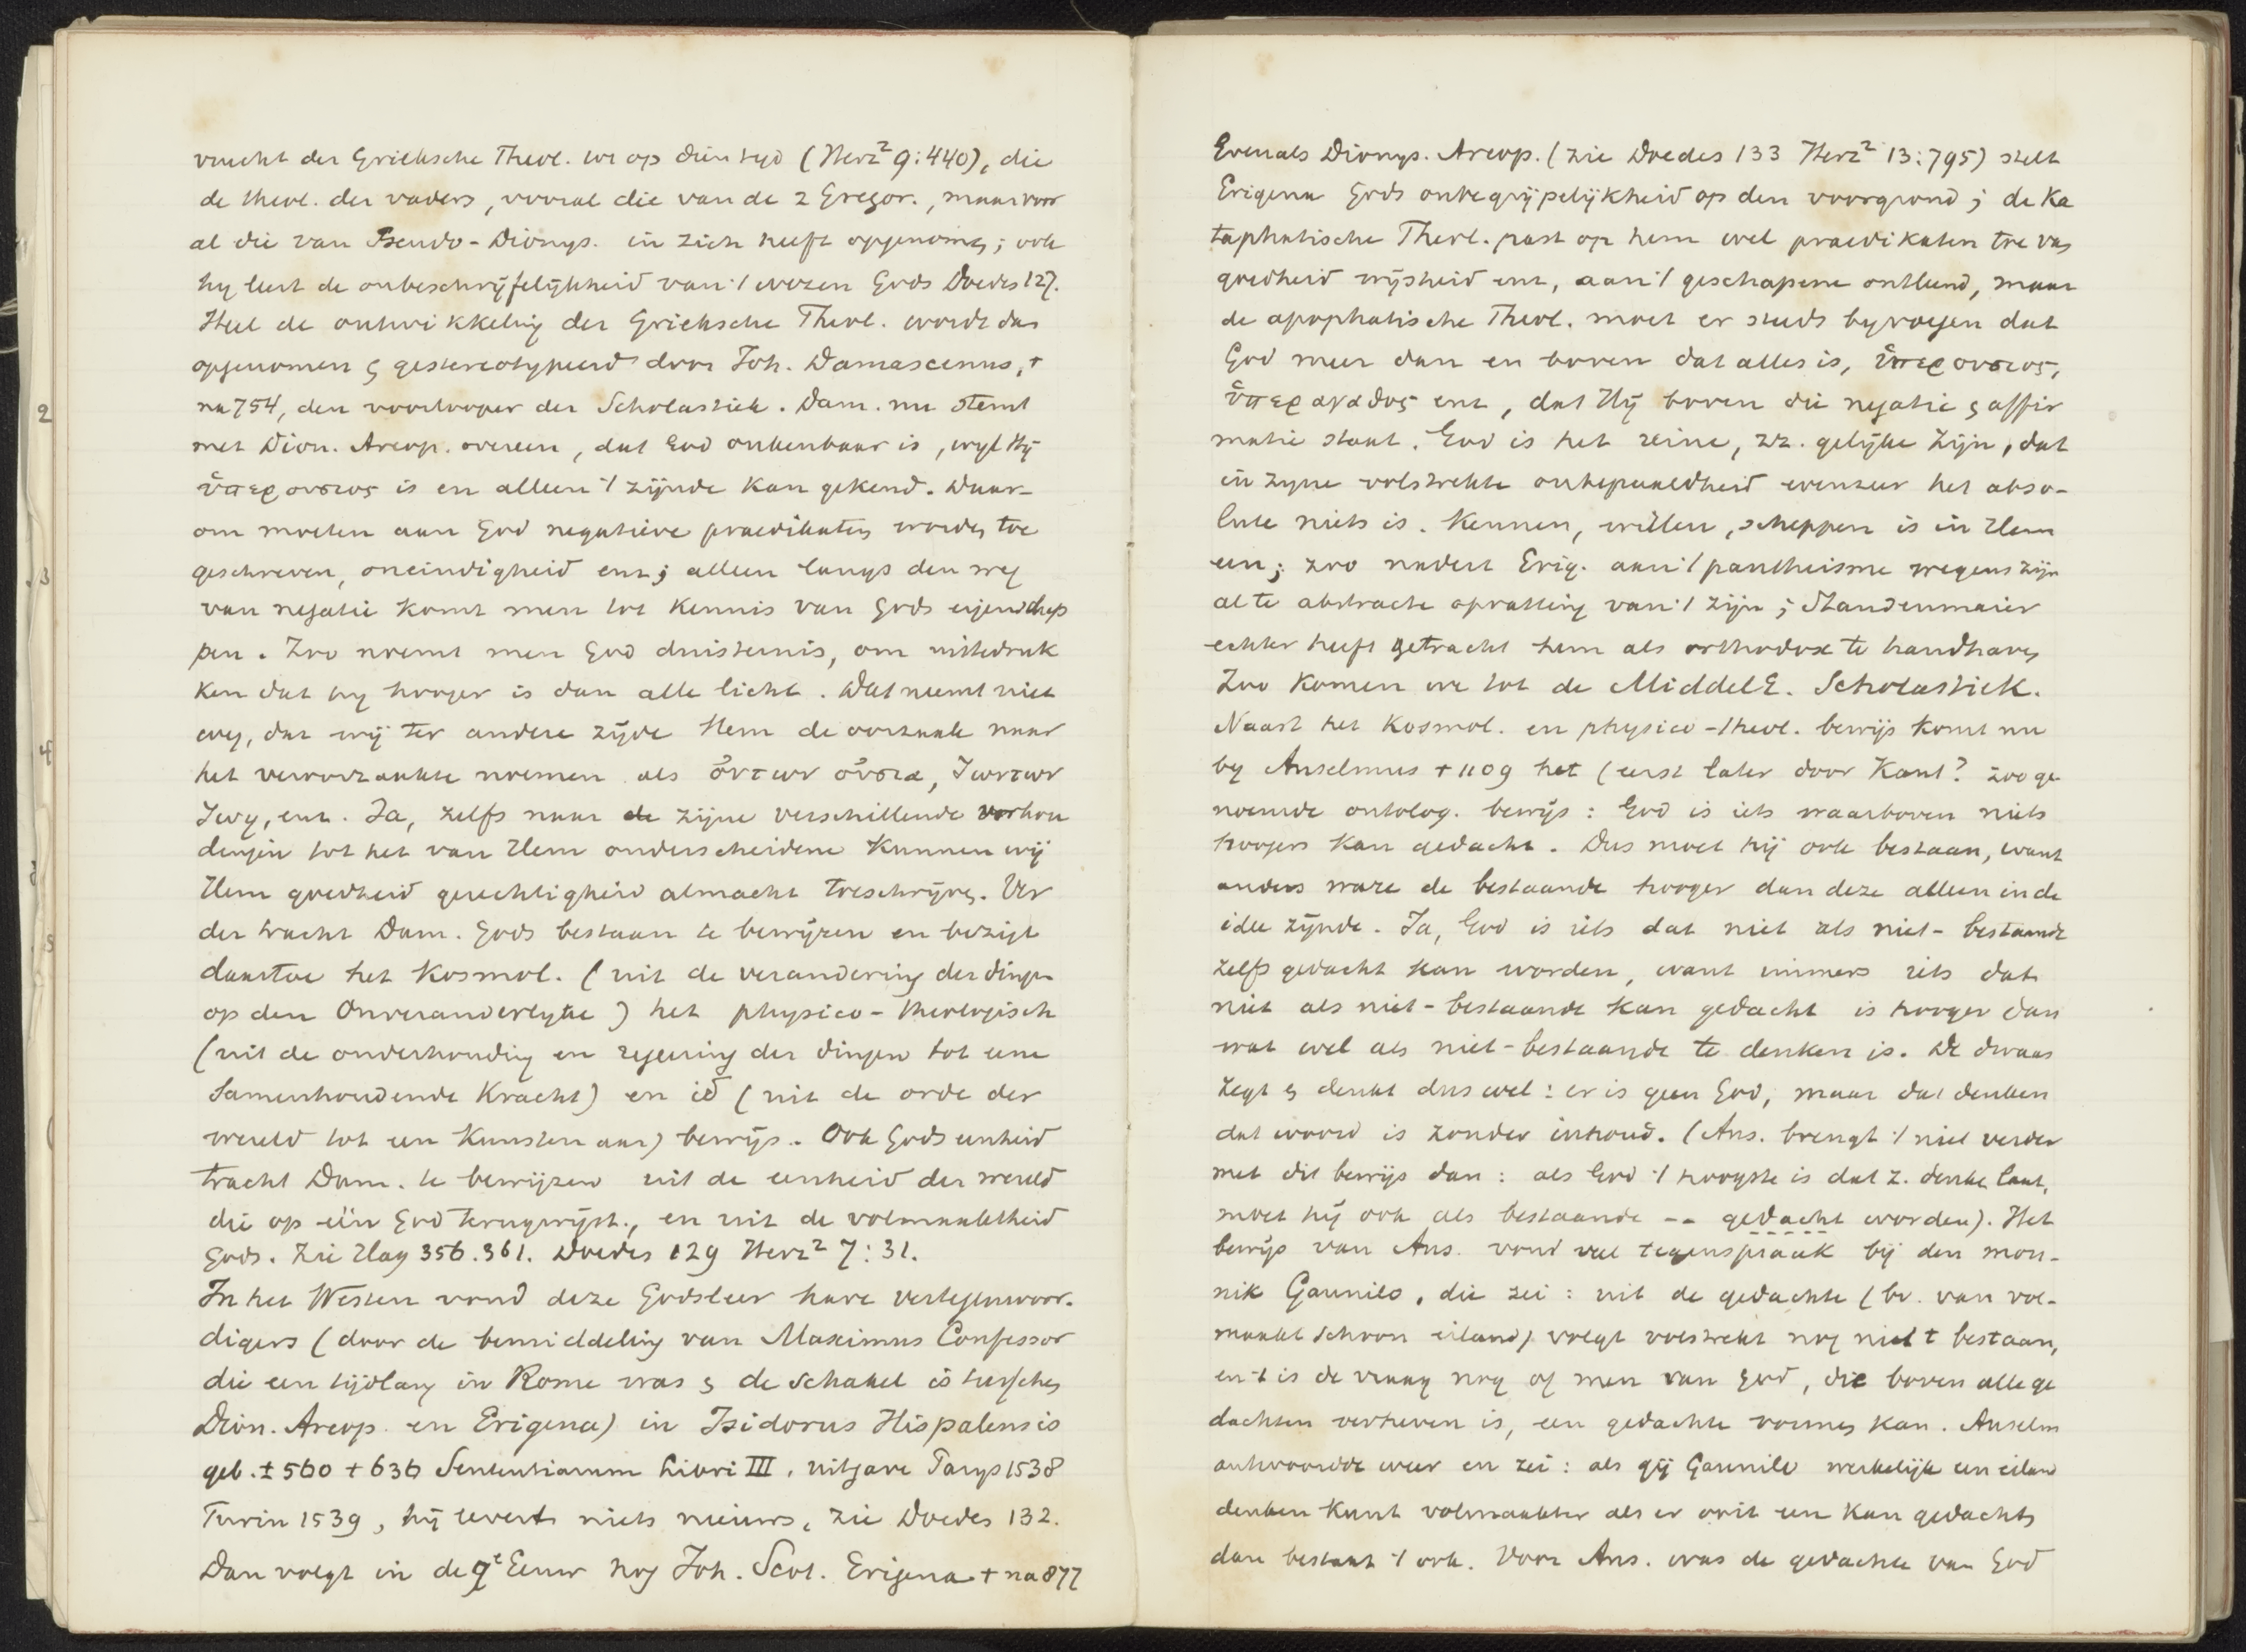 vrucht der Grieksche Theol. tot op dien tyd (Herz² 9:440), die
de theol. der vaders, vooral die van de 2 Gregor., maar voor
al die van Pseudo-Dionys. in zich heeft opgenomen; ook
hy leert de onbeschrijfelijkheid van 't wezen Gods Doedes 127.
Heel de ontwikkeling der Grieksche Theol. wordt dan
opgenomen & gestereotypeerd door Joh. Damascenus, †
na 754, den voorlooper der Scholastiek. Dam. nu stemt
met Dion. Areop. overeen, dat God onkenbaar is, wyl Hij
ὑπερουσιος is en alleen 't zijnde kan gekend. Daar-
om moeten aan God negatieve praedikaten worden toe
geschreven, oneindigheid enz; alleen langs den weg
van negatie komt men tot kennis van Gods eigenschap
pen. Zoo noemt men God duisternis, om uittedruk
ken dat hy hooger is dan alle licht. Dat neemt niet
weg, dat wij ter andere zijde Hem de oorzaak naar
het veroorzaakte noemen als ὄντων οὐσια, ζωντων
ζωη, enz. Ja, zelfs naar de zijne verschillende verhou
dingen tot het van Hem onderscheidene kunnen wij
Hem goedheid gerechtigheid almacht toeschrijven. Ver
der tracht Dam. Gods bestaan te bewijzen en bezigt
daartoe het kosmol. (uit de verandering der dingen
op den Onveranderlyke) het physico-theologisch
(uit de onderhouding en regeering der dingen tot eene
samenhoudende kracht) en id (uit de orde der
wereld tot een kunstenaar) bewijs. Ook Gods eenheid
tracht Dam. te bewijzen uit de eenheid der wereld
die op één God terugwijst., en uit de volmaaktheid
Gods. Zie Hag 356.361. Doedes 129 Herz² 7:31.
In het Westen vond deze Godsleer hare vertegenwoor-
digers (door de bemiddeling van Maximus Confessor
die een tijdlang in Rome was & de schakel is tusschen
Dion. Areop. en Erigena) in Isidorus Hispalensis
geb. ± 560 † 636 Sententiarum Libri III, uitgave Parys 1538
Turin 1539, hij levert niets nieuws, zie Doedes 132.
Dan volgt in de 9e Eeuw nog Joh. Scot. Erigena † na 877
Evenals Dionys. Areop. (zie Doedes 133 Herz² 13:795) stelt
Erigena Gods onbegrijpelijkheid op den voorgrond; de ka
taphatische Theol. past op hem wel praedikaten toe van
goedheid wijsheid enz, aan 't geschapene ontleend, maar
de apophatische Theol. moet er steeds byvoegen dat
God meer dan en boven dat alles is, ὑπερουσιος,
ὑπεραγαθος enz, dat Hij boven die negatie & affir
matie staat. God is het reine, zz. gelijke zijn, dat
in zyne volstrekte onbepaaldheid evenzeer het abso-
lute niets is. Kennen, willen, scheppen is in Hem
een; zoo nadert Erig. aan 't pantheisme wegens zijn
al te abstracte opvatting van 't zijn; Staudenmaier
echter heeft getracht hem als orthodox te handhaven
Zoo komen we tot de MiddelE. Scholastiek.
Naast het kosmol. en physico-theol. bewijs komt nu
by Anselmus † 1109 het (eerst later door Kant? zooge
noemde ontolog. bewijs: God is iets waarboven niets
hoogers kan gedacht. Dus moet hij ook bestaan, want
anders ware de bestaande hooger dan deze alleen in de
idee zijnde. Ja, God is iets dat niet als niet-bestaande
zelfs gedacht kan worden, want immers iets dat
niet als niet-bestaande kan gedacht is hooger dan
wat wel als niet-bestaande te denken is. De dwaas
zegt & denkt dus wel: er is geen God, maar dat denken
dat woord is zonder inhoud. (Ans. brengt 't niet verder
met dit bewijs dan: als God 't hoogste is dat z. denken laat,
moet hij ook als bestaande -- gedacht worden). Het
bewijs van Ans. vond veel tegenspraak bij den mon-
nik Gaunilo, die zei: uit de gedachte (bv. van vol-
maakt schoon eiland) volgt volstrekt nog niet 't bestaan,
en 't is de vraag nog of men van God, die boven alle ge
dachten verheven is, een gedachte vormen kan. Anselm
antwoordde weer en zei: als gij Gaunilo werkelijk een eiland
denken kunt volmaakter als er ooit een kan gedacht,
dan bestaat 't ook. Voor Ans. was de gedachte van God